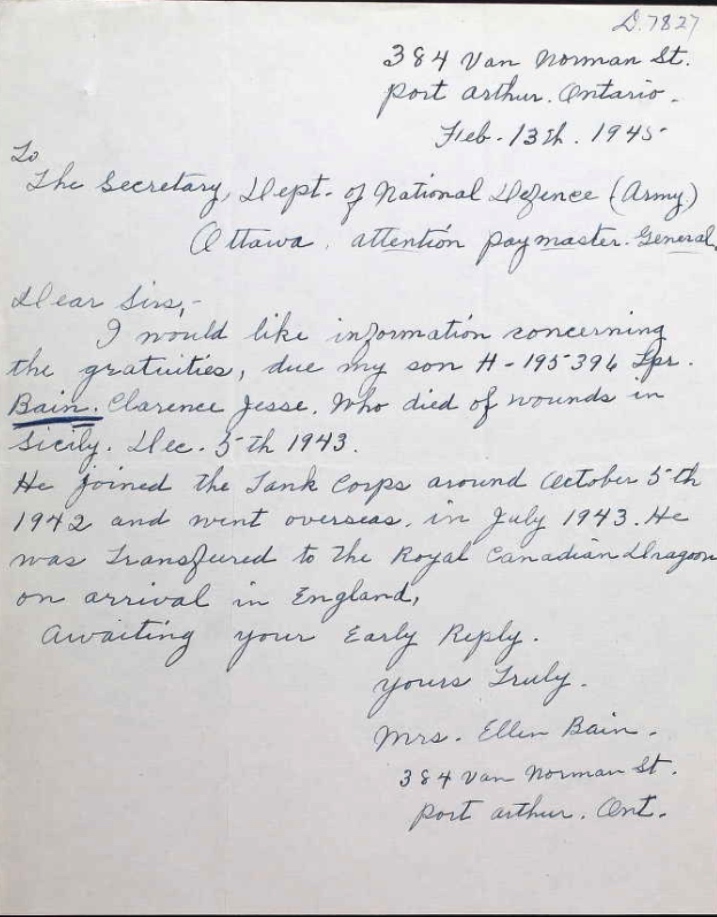 D.7827
384 Van Norman St.
Port Arthur. Ontario.
Feb. 13th. 1945
To
The Secretary, Dept. of National Defence (Army)
Ottawa. attention paymaster. General.
Dear Sirs,-
I would like information concerning
the gratuities, due my son H-195396 Tpr.
Bain. Clarence Jesse. Who died of wounds in
Sicily. Dec. 5th 1943.
He joined the Tank Corps around October 5th
1942 and went overseas. in July 1943. He
was transfeured to the Royal Canadian Dragoon
on arrival in England,
Awaiting your Early Reply.
yours Truly.
Mrs. Ellen Bain.
384 Van Norman St.
Port Arthur. Ont.